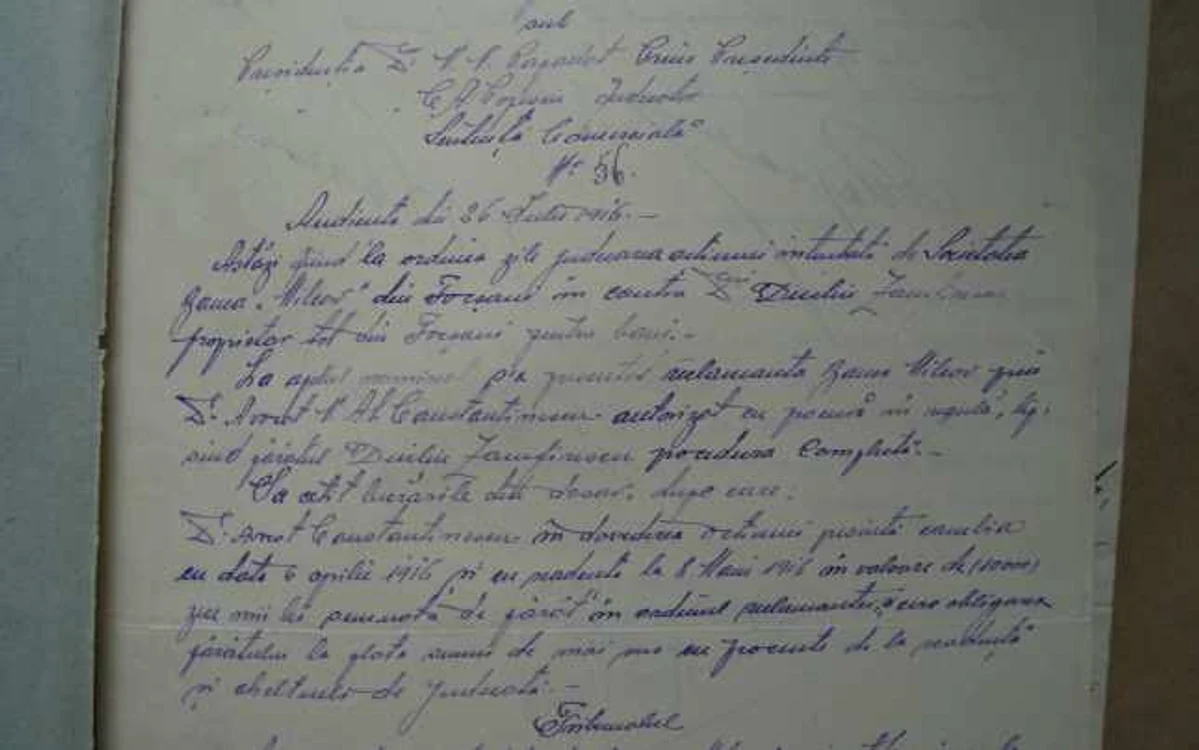 sub
Președenția D. N. N. Prim Președinte
C. A. Judecător
Sentință Comercială
Nº 36.
Audiența din 26 1916. —
Astăzi fiind la ordinea zilei judecarea acțiunei intentată de Societatea
Banca „Milcov" din Focșani în contra D-lui Duiliu Zamfirescu
proprietar tot din Focșani pentru bani. —
La apelul nominal s'a prezentat reclamanta Banca Milcov prin
D. Avocat N. Al. Constantinescu autorizat cu procură în regulă, lip-
sind pârâtul Duiliu Zamfirescu procedura completă. —
S'a cetit lucrările din dosar, după care:
D. Avocat Constantinescu în dovedirea acțiunei prezintă cambia
cu data 6 aprilie 1916 și cu scadența la 8 Mai 1916 în valoare de (10000)
zece mii lei semnată de pârât în ordinul reclamantei, cere obligarea
pârâtului la plata sumei de mai sus cu procente de la scadență
și cheltueli de judecată. —
Tribunalul